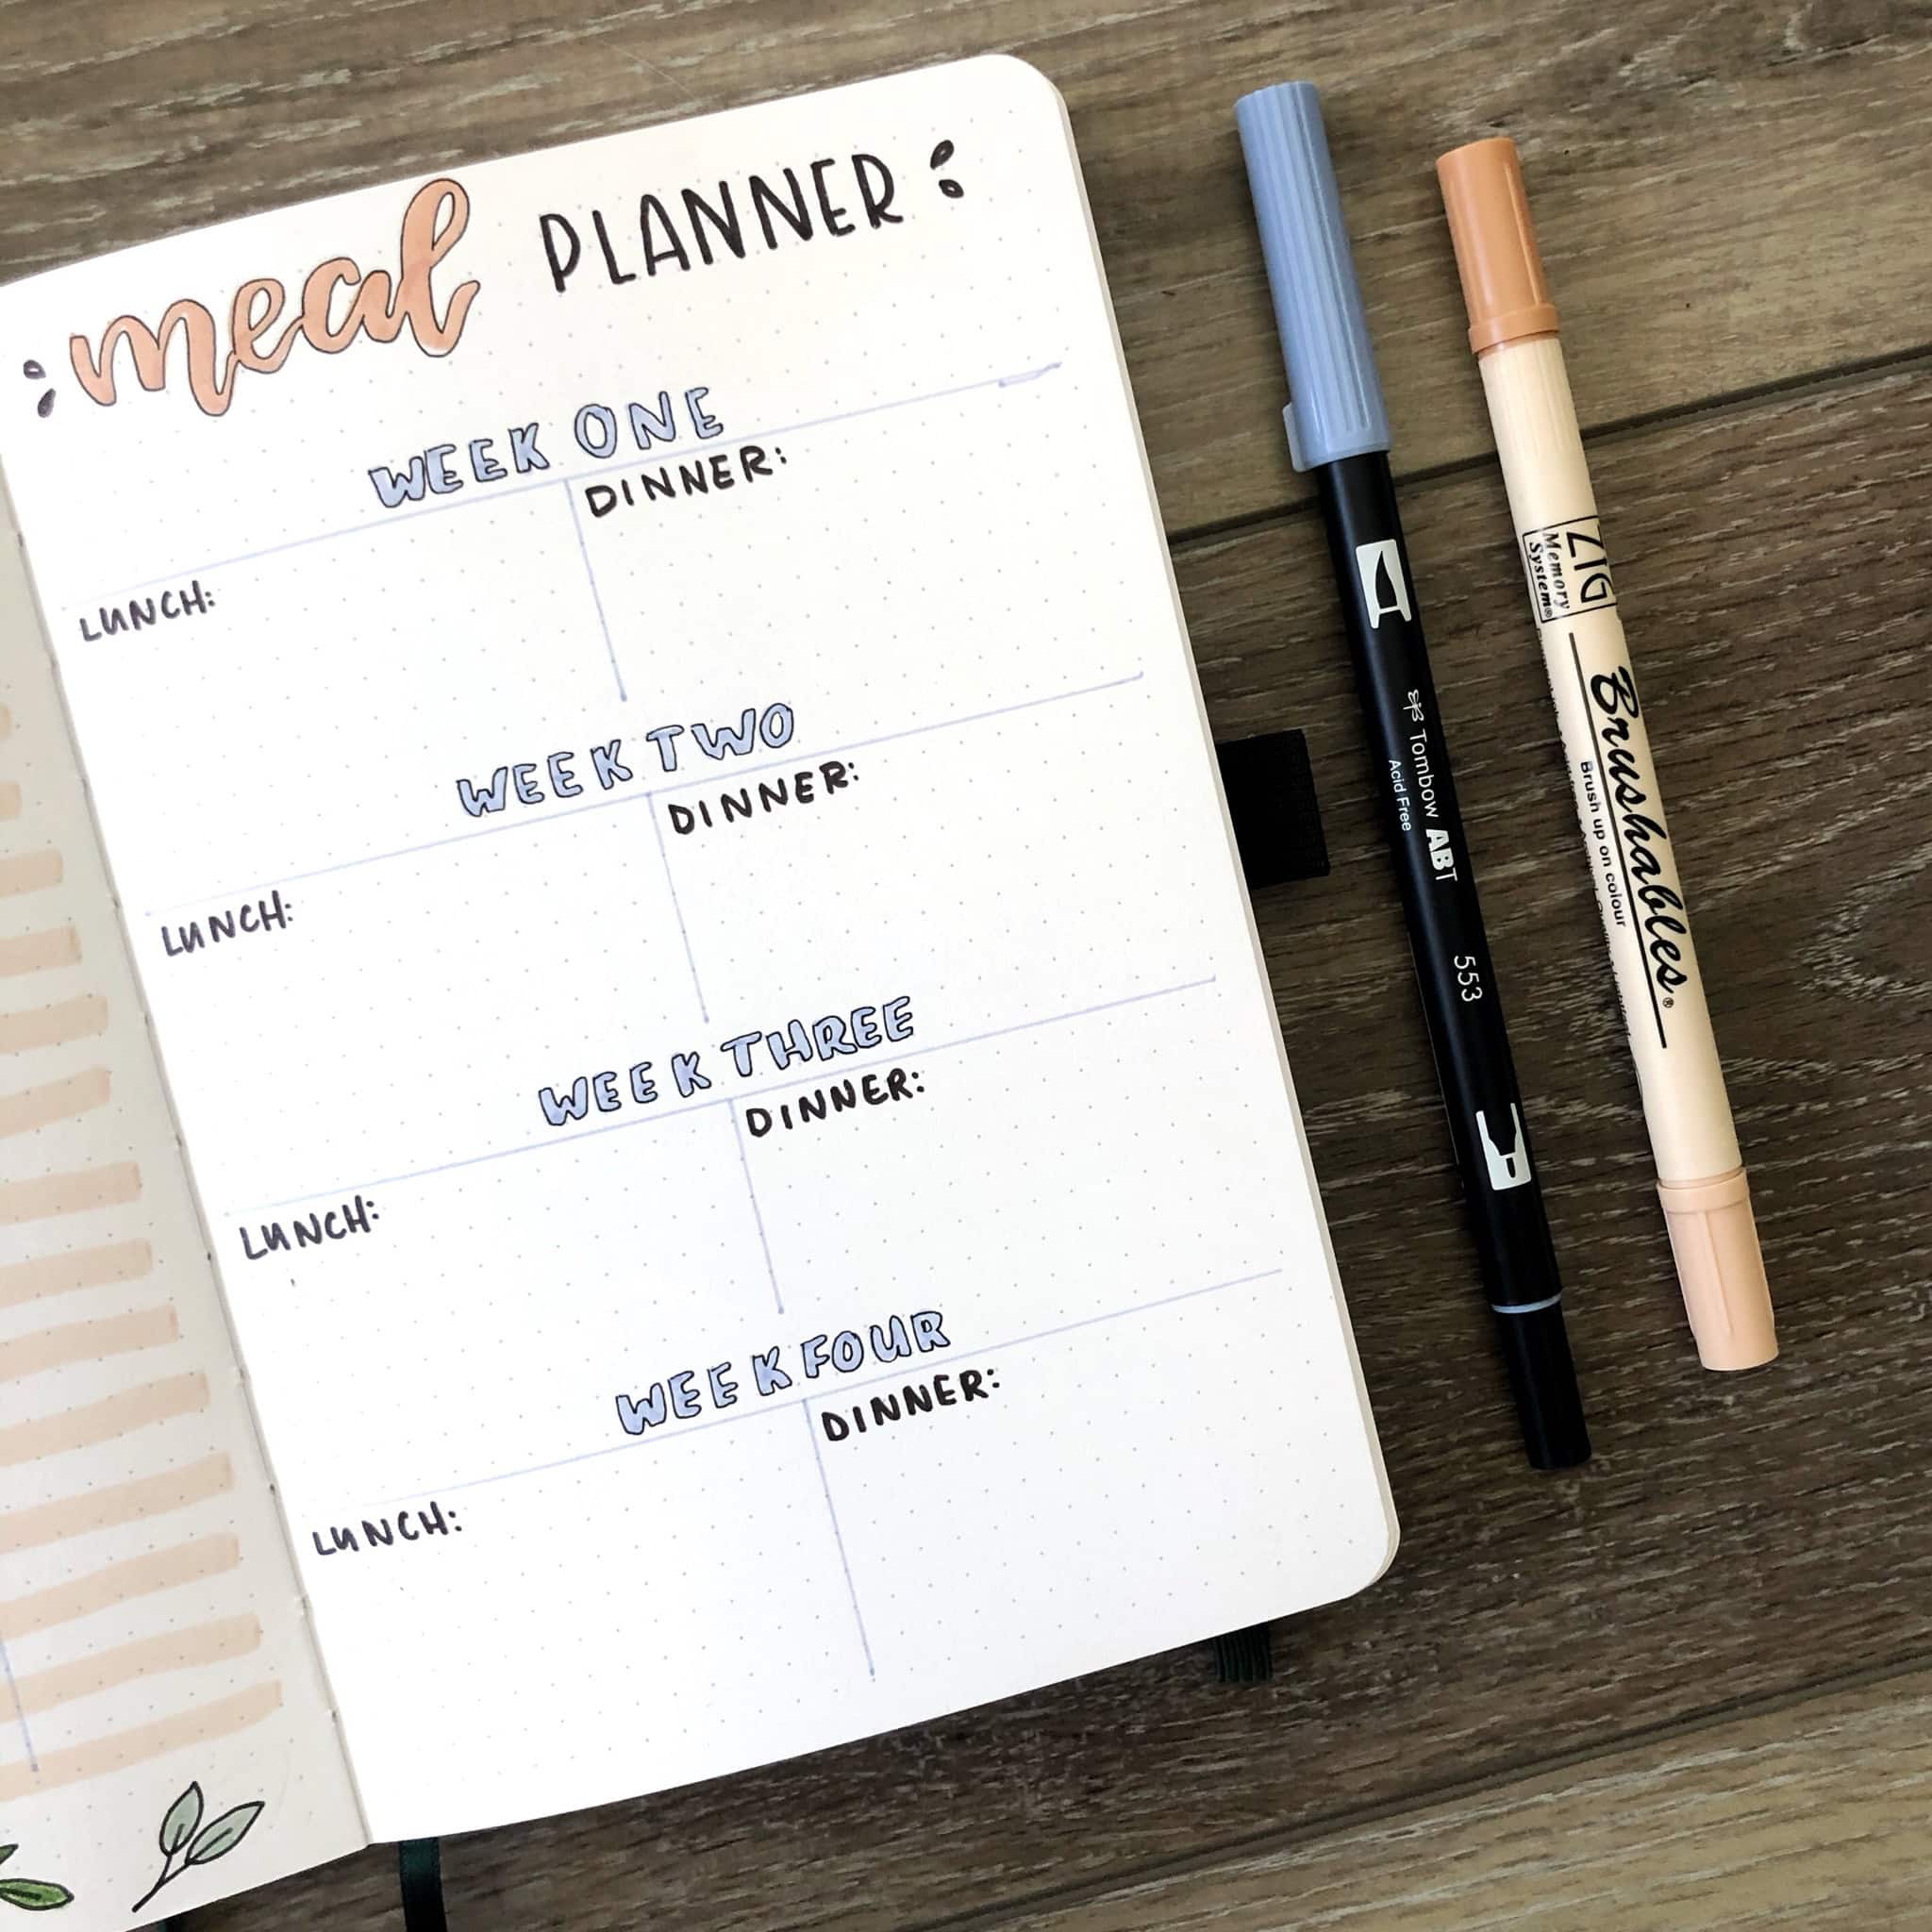 meal PLANNER
WEEK ONE
LUNCH:
DINNER:
WEEK TWO
LUNCH:
DINNER:
WEEK THREE
LUNCH:
DINNER:
WEEK FOUR
LUNCH:
DINNER:
Tombow ABT
Acid Free
553
ZIG
Memory
System®
Brushables®
Brush up on colour